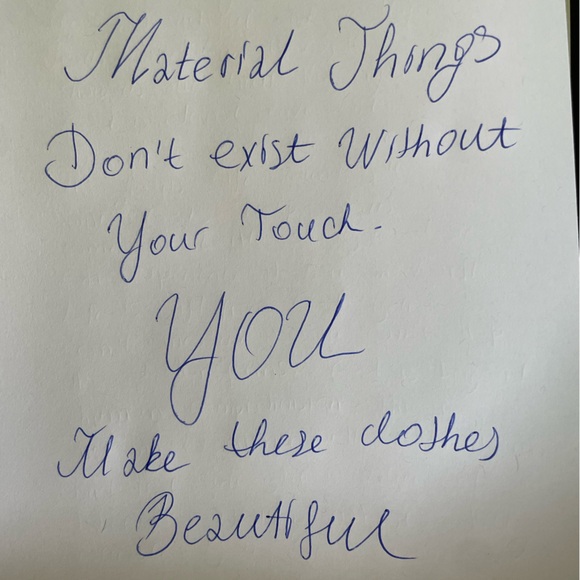 Material Things
Don't exist Without
Your Touch.
YOU
Make these clothes
Beautiful